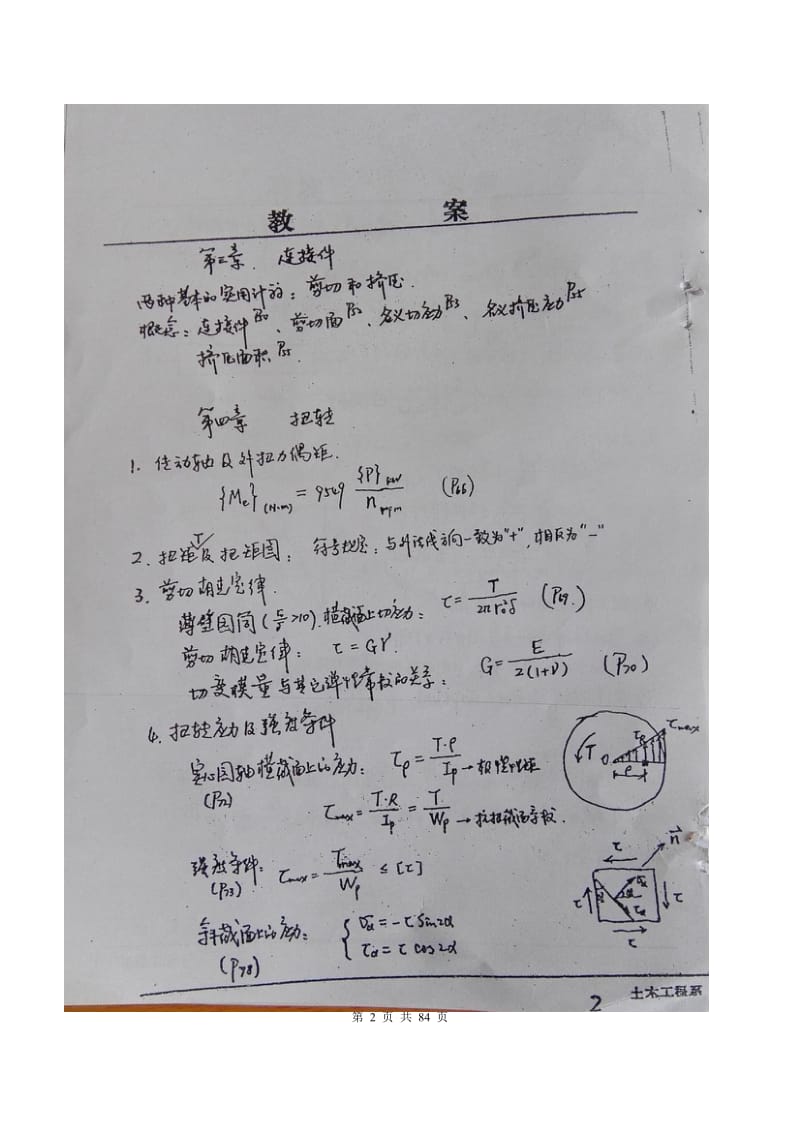 教 案
第三章. 连接件
两种基本的实用计算: 剪切和挤压.
概念: 连接件P50、剪切面P50、名义切应力P53、名义挤压应力P55
挤压面积P55.
第四章 扭转
1. 传动轴及外扭力偶矩.
{Me}(N·m) = 9549 {P}kW / n rpm (P66)
2. 扭矩T及扭矩图: 符号规定: 与外法线方向一致为"+", 相反为"-"
3. 剪切胡克定律.
薄壁圆筒(r0/δ>10)横截面上切应力: τ = T / 2πr0²δ (P69.)
剪切胡克定律: τ = Gγ
切变模量与其它弹性常数的关系: G = E / 2(1+ν) (P70)
4. 扭转应力及强度条件
实心圆轴横截面上的应力: τρ = T·ρ / Ip → 极惯性矩
(P72)
τmax = T·R / Ip = T / Wp → 抗扭截面系数.
T O ρ τρ τmax
强度条件: τmax = Tmax / Wp ≤ [τ]
(P73)
斜截面上的应力: { σα = -τ sin2α
τα = τ cos2α
(P78)
τ n τ σα α τα τ τ
2 土木工程系
第 2 页 共 84 页